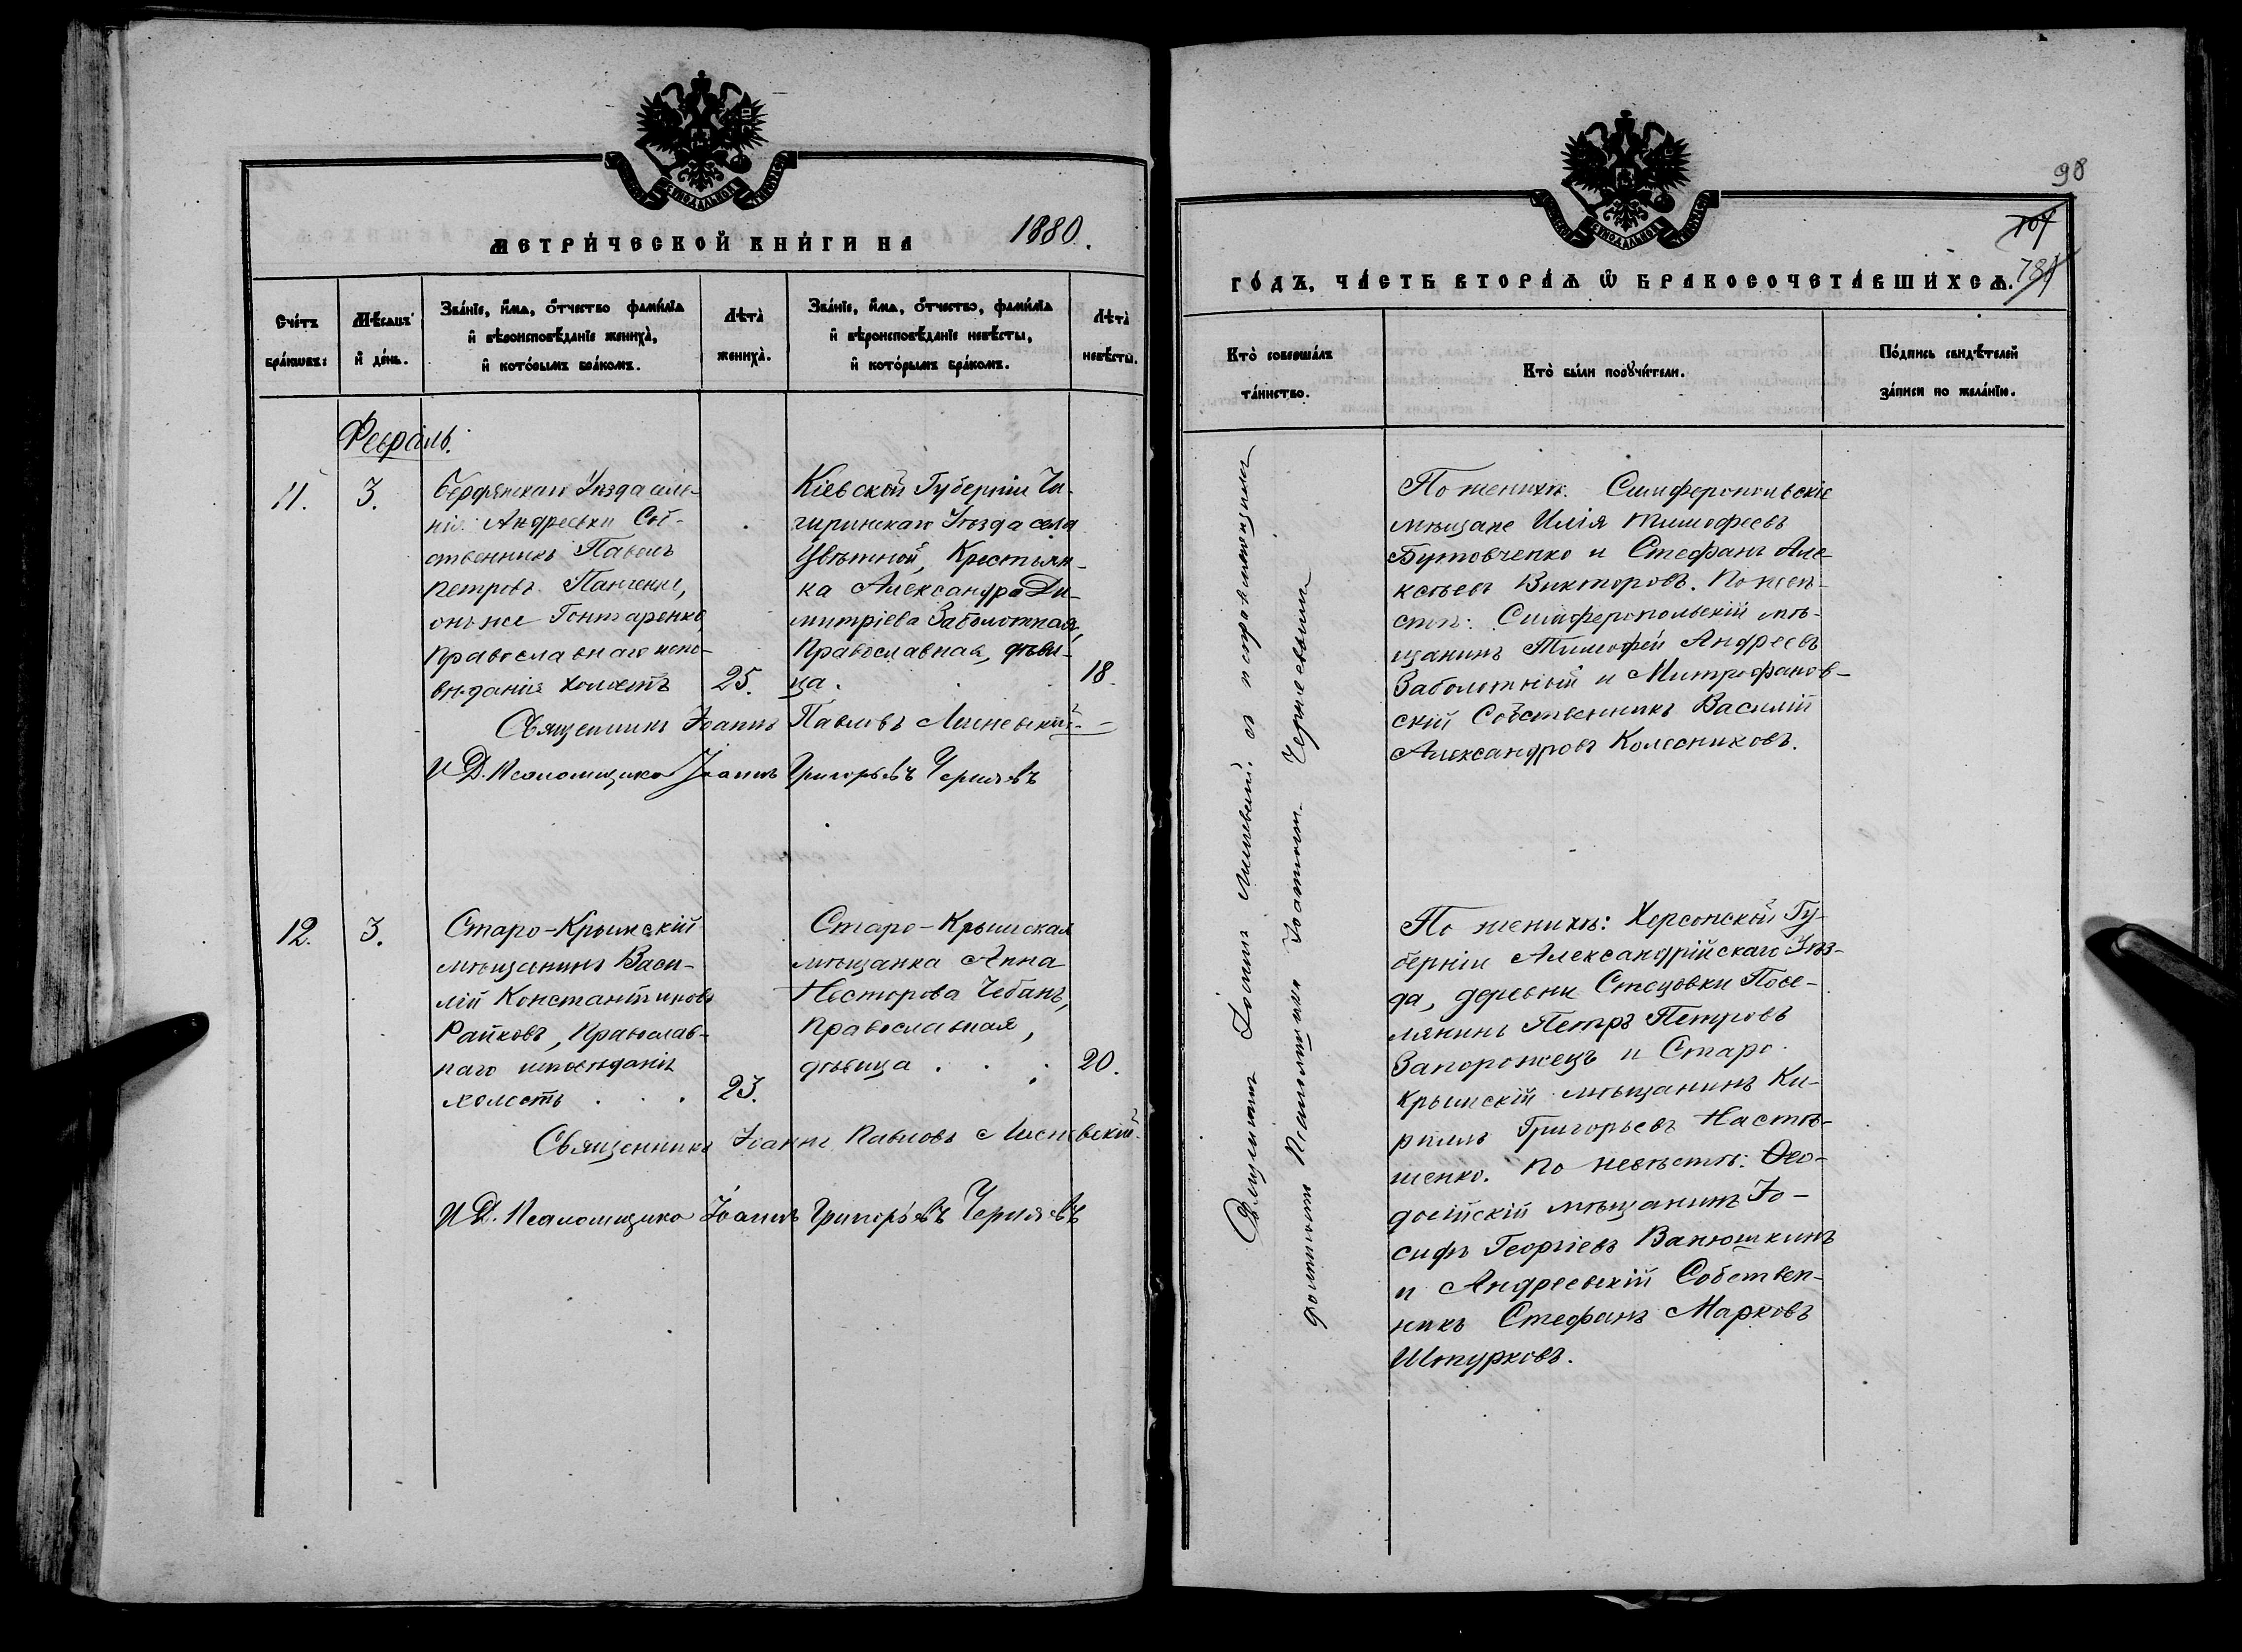 МЕТРИ́ЧЕСКОЙ КНИ́ГИ НА 1880.
Сче́тъ бра́кѡвъ:
Мѣ́сяцъ и҆ де́нь.
Зва́нїе, и҆́мѧ, ѻ҆́тчество фами́лїа
и҆ вѣроисповѣ́данїе жениха̀,
и҆ кото́рымъ бра́комъ.
Лѣта̀ жениха̀.
Зва́нїе, и҆́мѧ, ѻ҆́тчество, фами́лїа
и҆ вѣроисповѣ́данїе невѣ́сты,
и҆ кото́рымъ бра́комъ.
Лѣта̀ невѣ́сты.
Февраль.
11.
3.
Бердянскаго Уѣзда селе-
нія Андреевки Соб-
ственникъ Павелъ
Петровъ Панченко,
онъ же Гонтаренко,
Православнаго испо-
вѣданія холостъ
25.
Кіевской Губерніи Чи-
гиринскаго Уѣзда села
Цвѣтной, Крестьян-
ка Александра Ди-
митріева Заболотная,
Православная, дѣви-
ца.
18.
Священникъ Іоаннъ Павловъ
И Д. Псаломщика Іоаннъ Григорьевъ Черняевъ
12.
3.
Старо-Крымскій
мѣщанинъ Васи-
лій Константиновъ
Райковъ, Православ-
наго исповѣданія
холостъ . . .
23.
Старо-Крымская
мѣщанка Анна
Несторова Чебанъ,
Православная,
дѣвица . . .
20.
Священникъ Іоаннъ Павловъ
И Д. Псаломщика Іоаннъ Григорьевъ Черняевъ
98
781
ГО́ДЪ, ЧА́СТЬ ВТОРА́Ѧ Ѡ҆ БРАКОСОЧЕТА́ВШИХСѦ.
Кто̀ соверша́лъ
та́инство.
Кто̀ бы́ли порꙋчи́тели.
По́дпись свидѣ́телей
за́писи по жела́нїю.
Священникъ Іоаннъ съ исправляющимъ
должность Псаломщика Іоанномъ Черняевымъ
По женихѣ: Симферопольскіе
мѣщане Илія Тимофеевъ
Бутовченко и Стефанъ Але-
ксѣевъ Викторовъ. По невѣ-
стѣ: Симферопольскій мѣ-
щанинъ Тимофей Андреевъ
Заболотный и Митрофанов-
скій Собственникъ Василій
Александровъ Колесниковъ.
По женихѣ: Херсонской Гу-
берніи Александрійскаго Уѣз-
да, деревни Стецовки Посе-
лянинъ Петръ Петровъ
Запорожецъ и Старо-
Крымскій мѣщанинъ Ки-
риллъ Григорьевъ Насто-
шенко. По невѣстѣ: Ѳео-
досійскій мѣщанинъ Іо-
сифъ Георгіевъ Ванюшкинъ
и Андреевскій Собствен-
никъ Стефанъ Марковъ
Штурковъ.